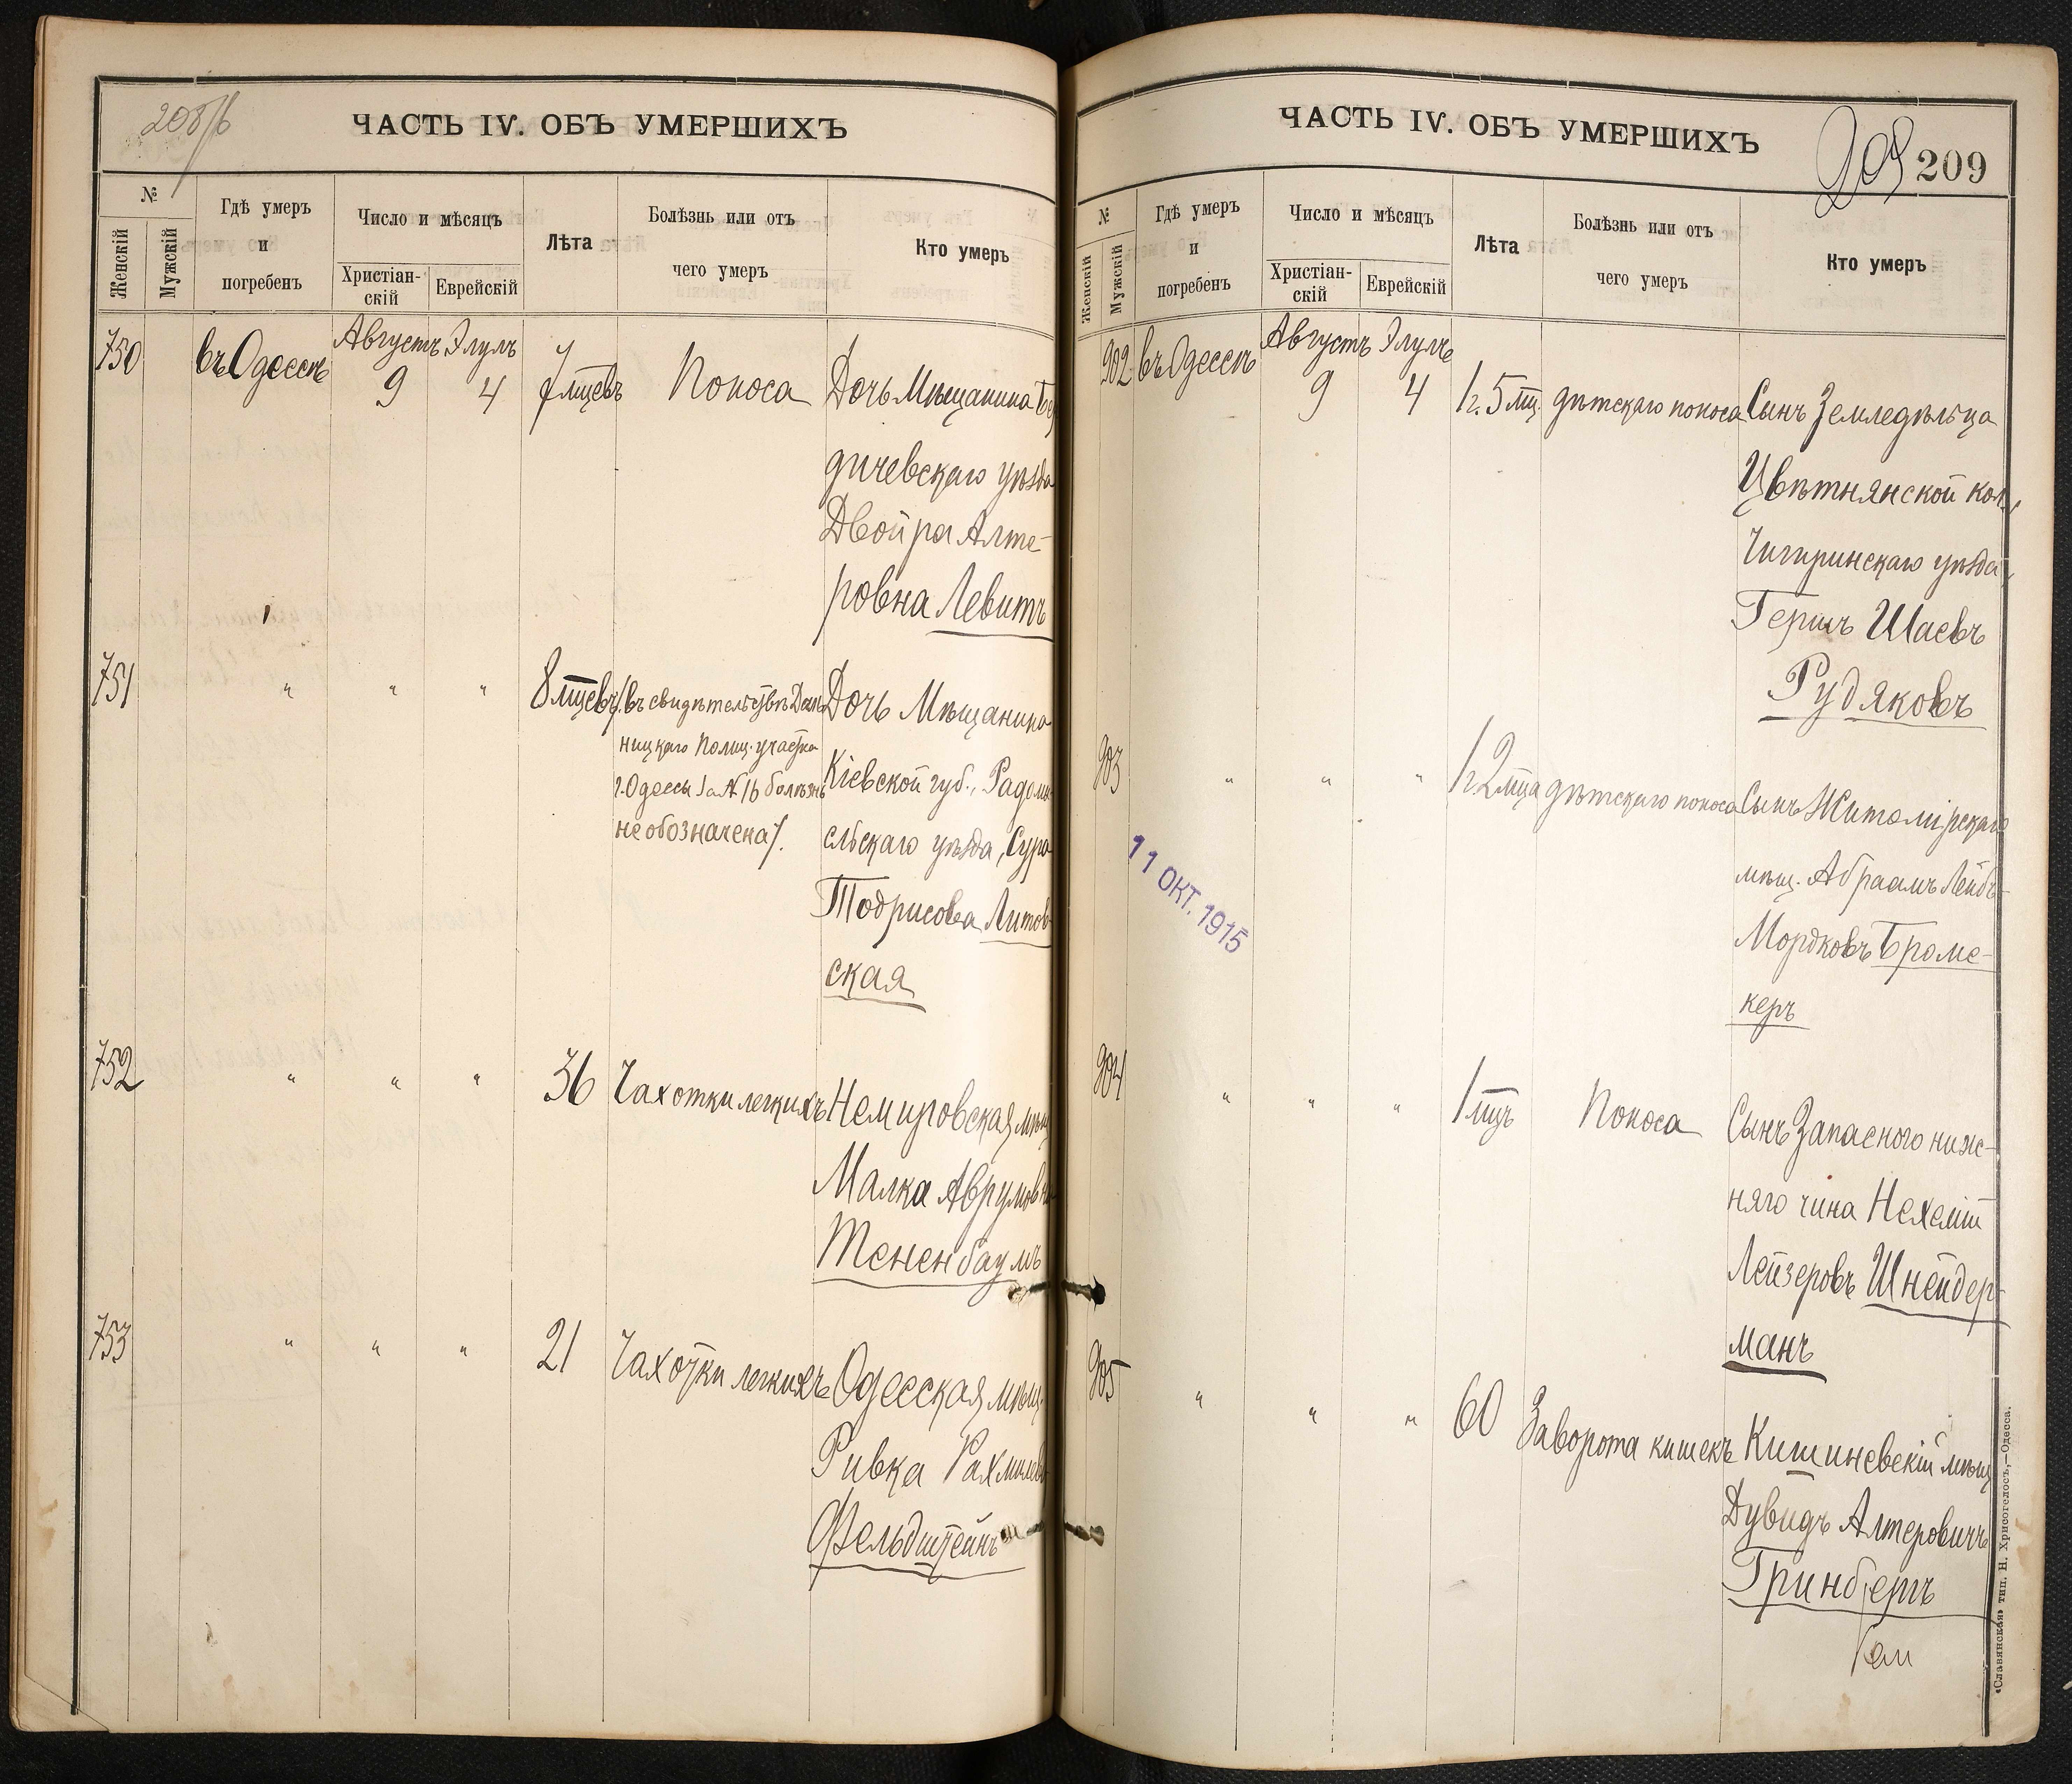 208/б
ЧАСТЬ IV. ОБЪ УМЕРШИХЪ
№
Женскій
Мужскій
Гдѣ умеръ
и
погребенъ
Число и мѣсяцъ
Христіан-
скій
Еврейскій
Лѣта
Болѣзнь или отъ
чего умеръ
Кто умеръ
750 въ Одессѣ Августъ Элулъ
9 4 мцевъ Поноса Дочь Мѣщанина Бер
дичевскаго уѣзда
Двойра Алте-
ровна Левитъ
751 " " " 8 мцевъ /въ свидѣтельствѣ Даль Дочь Мѣщанина
ницкаго Полиц. участка
г. Одессы за № 16 болѣзнь
не обозначена/.
Кіевской губ., Радомы
сльскаго уѣзда, Сура
Тодрисова Литов-
ская
752 " " " 36 Чахотки легкихъ Немировская мѣщ
Малка Аврумовна
Тененбаумъ
753 " " " 21 Чахотки легкихъ Одесская мѣщ.
Ривка Рахмилевн
Фельдштейнъ
ЧАСТЬ IV. ОБЪ УМЕРШИХЪ
209 209
№
Женскій
Мужскій
Гдѣ умеръ
и
погребенъ
Число и мѣсяцъ
Христіан-
скій
Еврейскій
Лѣта
Болѣзнь или отъ
чего умеръ
Кто умеръ
902 въ Одессѣ Августъ Элулъ
9 4 1 г. 5 мц. дѣтскаго поноса Сынъ Земледѣльца
Цвѣтнянской кол.,
Чигиринскаго уѣзда,
Гершъ Шаевъ
Рудяковъ
903 " " " 1 г 2 мца дѣтскаго поноса Сынъ Житомірскаго
мѣщ. Абраамъ Лейбъ-
Мордковъ Броме-
керъ
11 ОКТ. 1915
904 " " " 1 мцъ Поноса Сынъ Запасного ниж-
няго чина Нехемія
Лейзеровъ Шнейдер-
манъ
905 " " " 60 Заворота кишекъ Кишиневскій мѣщ
Дувидъ Алтеровичъ
Гринбергъ
«Славянская» тип. Н. Хрисогелосъ,—Одесса.